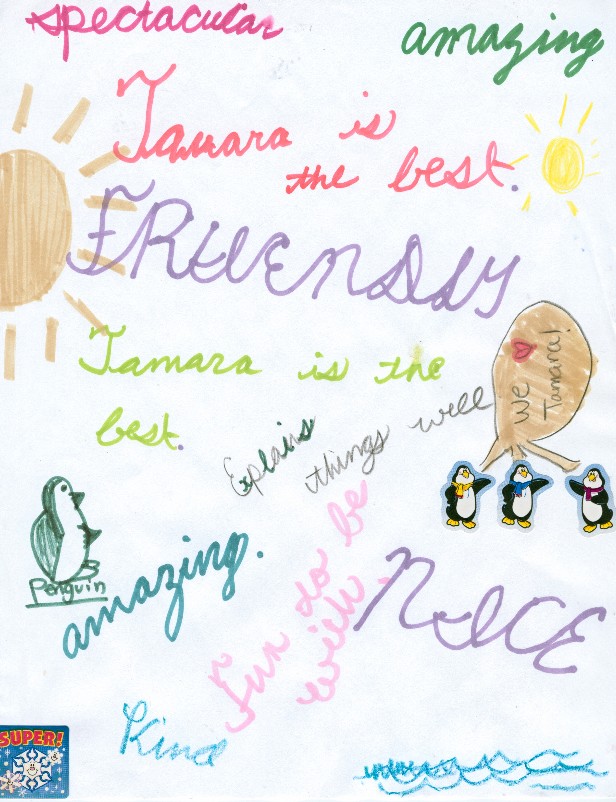 spectacular
amazing
Tamara is
the best.
FRIENDLY
Tamara is the
best.
We ♥
Tamara!
Explains
things well
Penguin
amazing.
Fun to be
with.
NICE
SUPER!
Kind